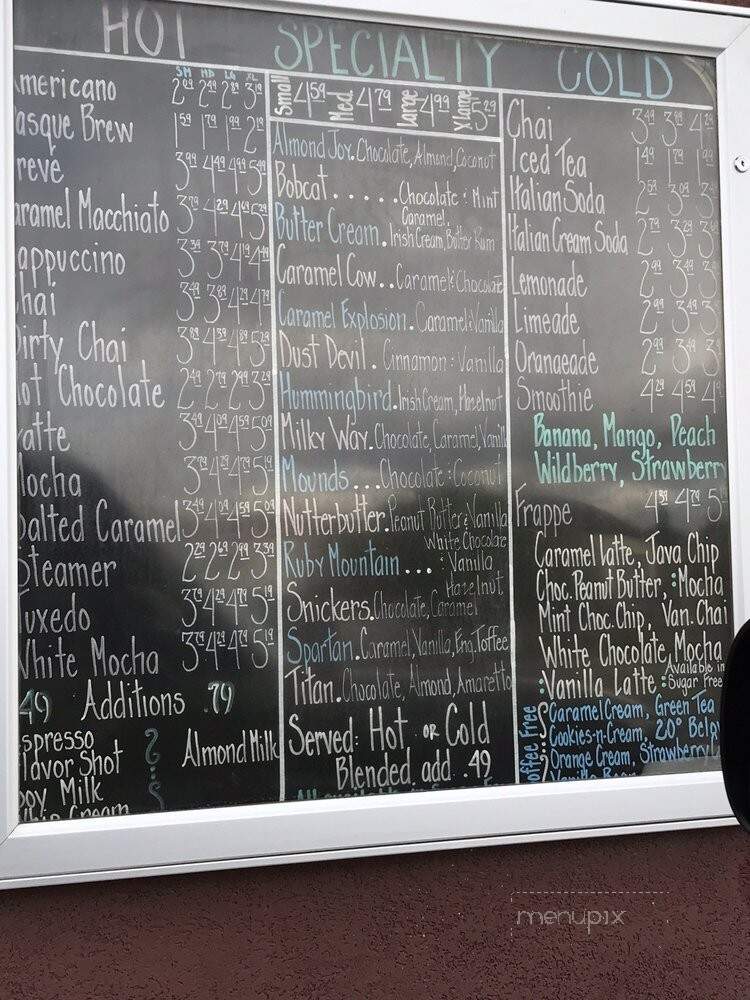 HOT
SM MD LG XL
mericano 2.09 2.49 2.89 3.19
asque Brew 1.59 1.79 1.99 2.19
reve 3.99 4.49 4.99 5.49
aramel Macchiato 3.79 4.29 4.69 5.29
appuccino 3.39 3.79 4.19 4.49
hai 3.49 3.89 4.29 4.79
irty Chai 3.89 4.59 4.89 5.39
ot Chocolate 2.49 2.79 2.99 3.29
atte 3.49 4.09 4.59 5.09
ocha 3.79 4.29 4.79 5.19
alted Caramel 3.49 4.09 4.59 5.09
teamer 2.29 2.69 2.99 3.39
uxedo 3.79 4.29 4.79 5.19
hite Mocha 3.79 4.29 4.79 5.19
49 Additions .79
spresso
lavor Shot
oy Milk
hip Cream
Almond Milk
SPECIALTY
Small 4.59 Med. 4.79 Large 4.99 XLarge 5.29
Almond Joy. Chocolate, Almond, Coconut
Bobcat..... Chocolate : Mint
Butter Cream. Caramel,
Irish Cream, Butter Rum
Caramel Cow.. Caramel : Chocolate
Caramel Explosion. Caramel : Vanilla
Dust Devil. Cinnamon : Vanilla
Hummingbird. Irish Cream, Hazelnut
Milky Way. Chocolate, Caramel, Vanill
Mounds... Chocolate : Coconut
Nutterbutter. Peanut Butter : Vanilla
White Chocolate
Ruby Mountain... : Vanilla
Hazelnut,
Snickers. Chocolate, Caramel
Spartan. Caramel, Vanilla, Eng. Toffee
Titan. Chocolate, Almond, Amaretto
Served: Hot or Cold
Blended add .49
COLD
Chai 3.49 3.89 4.29
Iced Tea 1.49 1.79 1.99
Italian Soda 2.59 3.09 3
Italian Cream Soda 2.79 3.29 3
Lemonade 2.99 3.49 3
Limeade 2.99 3.49 3
Orangeade 2.99 3.49 3
Smoothie 4.29 4.59 4
Banana, Mango, Peach
Wildberry, Strawberr
Frappe 4.59 4.79 5
Caramel Latte, Java Chip
Choc. Peanut Butter, : Mocha
Mint Choc. Chip, Van. Chai
White Chocolate, Mocha
: Vanilla Latte : Available in
Sugar Free
offee Free
Caramel Cream, Green Tea
Cookies-n-Cream, 20° Belo
Orange Cream, Strawberry
Vanilla Bean
menupix